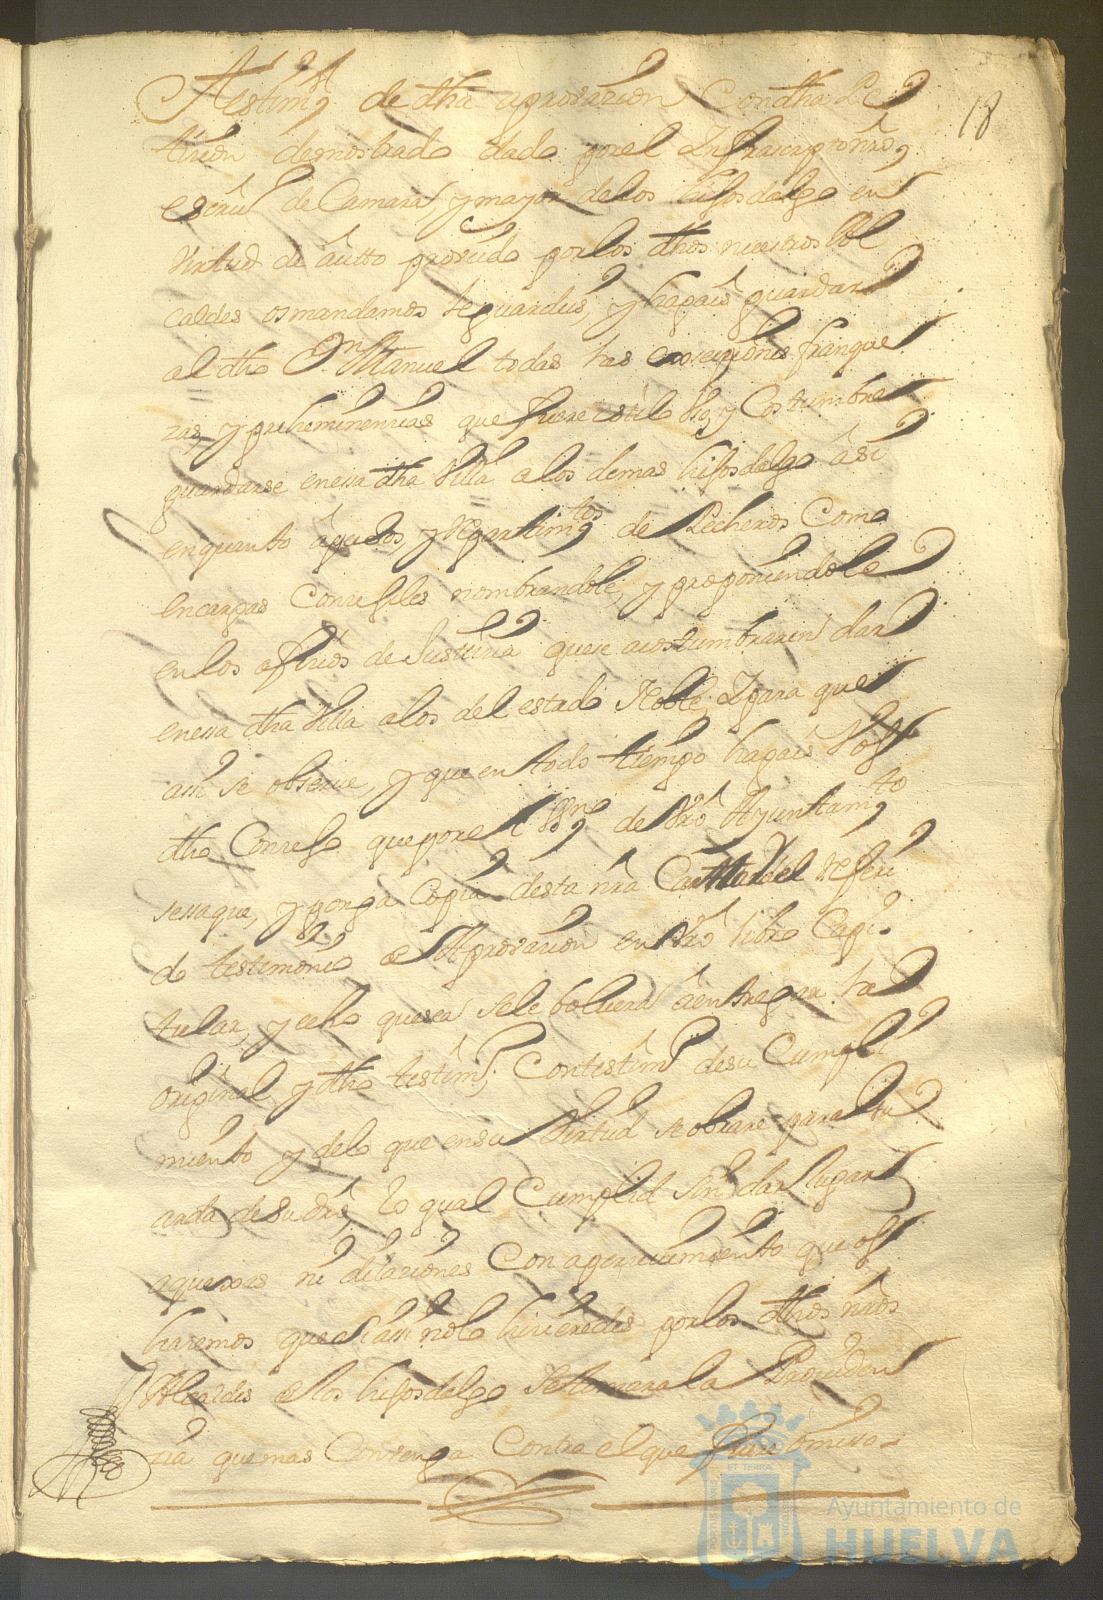 18
testimo de dha aprovazion, Con dha Pe
tizion demostrado dado por el Infrascripto nro
escrivo de Camara, y mayor de los hijosdalgo en
Virtud de auto proveido por los dhos nuestros Al
caldes os mandamos le guardeis, y hagais guardar
al dho Dn Manuel todas las exsepziones franque
zas, y preheminenzias que fuere estilo Vso, y Costumbre
guardarse en essa dha Villa a los demas hijosdalgo asi
en quanto a pechos, y Repartimtos de Pecheros Como
en cargas Consejiles nombrandole, y proponiendole
en los ofizios de Justizia que se acostumbraren dar
en essa dha Villa a los del estado Noble, Y para que
asi se observe, y que en todo tiempo hagais Vos
dho Consejo que por el Essno de Vro Ayuntamto
se saque, y ponga Copia desta nra Carta del Referi
do testimonio de Aprovazion en Vro libro Capi
tular, y echo que sea se le bolvera a entregar la
original y dho testimo, Con testimo de su Cumpli
miento y de lo que en su Virtud se obrare para la
arda de su dro, lo qual Cumplid sin dar lugar
a quexas ni dilaziones Con aperzivimiento que os
haremos que si asi no lo hizieredes por los dhos nros
Alcaldes de los hijosdalgo se tomara la Providen
zia que mas Convenga Contra el que fuere omiso
ET TERRAE
Ayuntamiento de
HUELVA